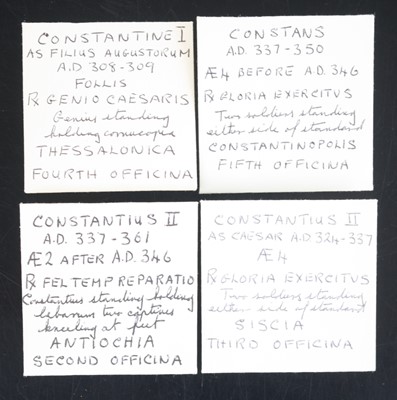 CONSTANTINE I
AS FILIUS AUGUSTORUM
A.D 308-309
FOLLIS
℞ GENIO CAESARIS
Genius standing
holding cornucopia
THESSALONICA
FOURTH OFFICINA
CONSTANS
A.D. 337-350
Æ4 BEFORE A.D. 346
℞ GLORIA EXERCITVS
Two soldiers standing
either side of standard
CONSTANTINOPOLIS
FIFTH OFFICINA
CONSTANTIUS II
A.D. 337-361
Æ2 AFTER A.D. 346
℞ FEL TEMP REPARATIO
Constantius standing holding
labarum two captives
kneeling at feet
ANTIOCHIA
SECOND OFFICINA
CONSTANTIUS II
AS CAESAR A.D 324-337
Æ4
℞ GLORIA EXERCITUS
Two soldiers standing
either side of standard
SISCIA
THIRD OFFICINA